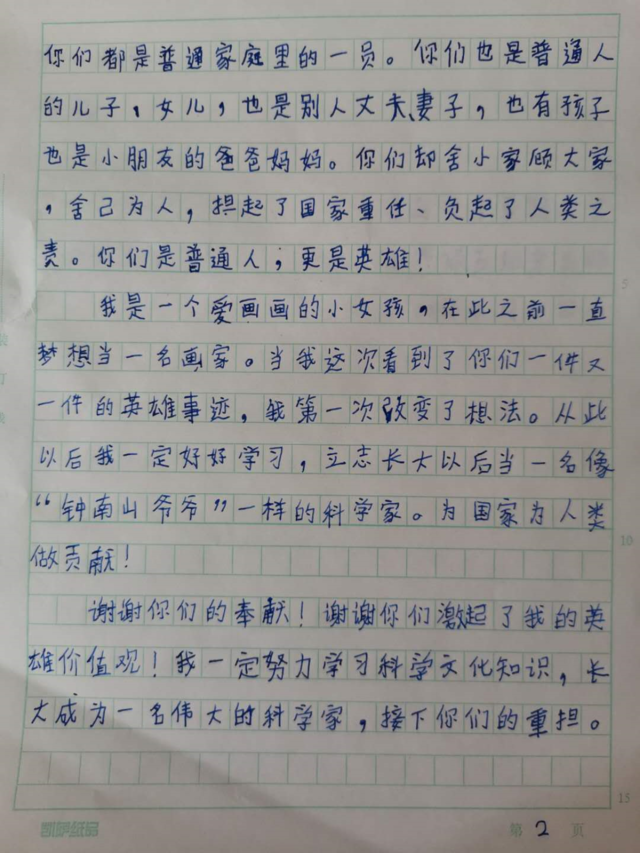 你们都是普通家庭里的一员。你们也是普通人
的儿子、女儿，也是别人丈夫妻子，也有孩子
也是小朋友的爸爸妈妈。你们却舍小家顾大家
，舍己为人，担起了国家重任、负起了人类之
责。你们是普通人；更是英雄！
5
我是一个爱画画的小女孩，在此之前一直
梦想当一名画家。当我这次看到了你们一件又
一件的英雄事迹，我第一次改变了想法。从此
以后我一定好好学习，立志长大以后当一名像
“钟南山爷爷”一样的科学家。为国家为人类
10
做贡献！
谢谢你们的奉献！谢谢你们激起了我的英
雄价值观！我一定努力学习科学文化知识，长
大成为一名伟大的科学家，接下你们的重担。
15
第 2 页